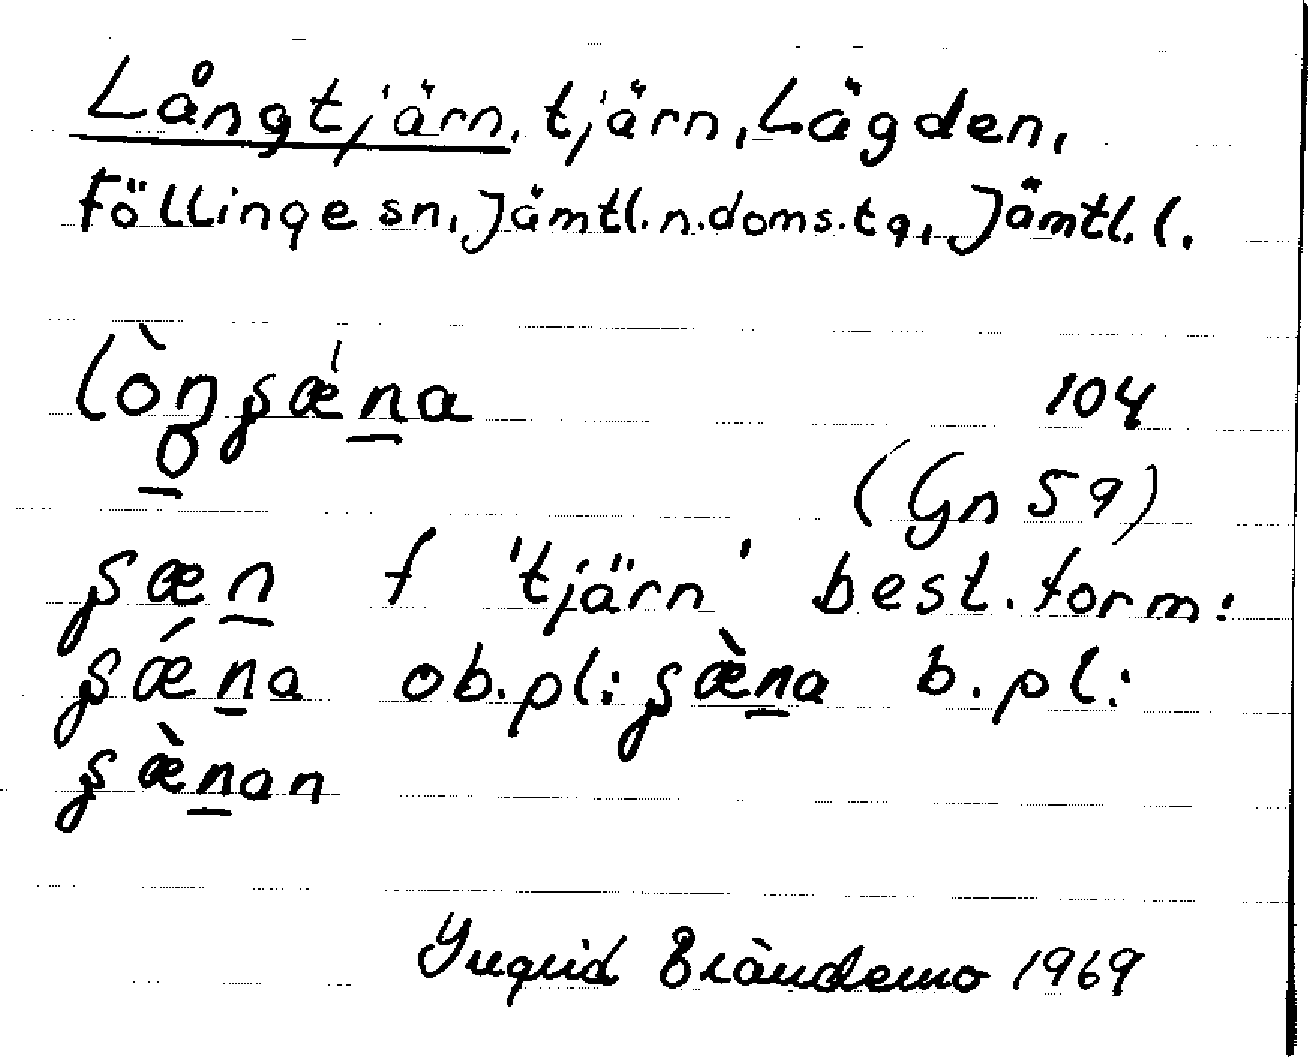 Långtjärn, tjärn, Lägden,
Föllinge sn, Jämtl. n. doms. tg, Jämtl. l.
lòŋʂǽn̲a 104
o̲
(Gn 59)
ʂæn̲ f 'tjärn' best. form:
ʂǽn̲a ob.pl: ʂæ̀n̲a b.pl:
ʂæ̀n̲an
Ingrid Brändemo 1969